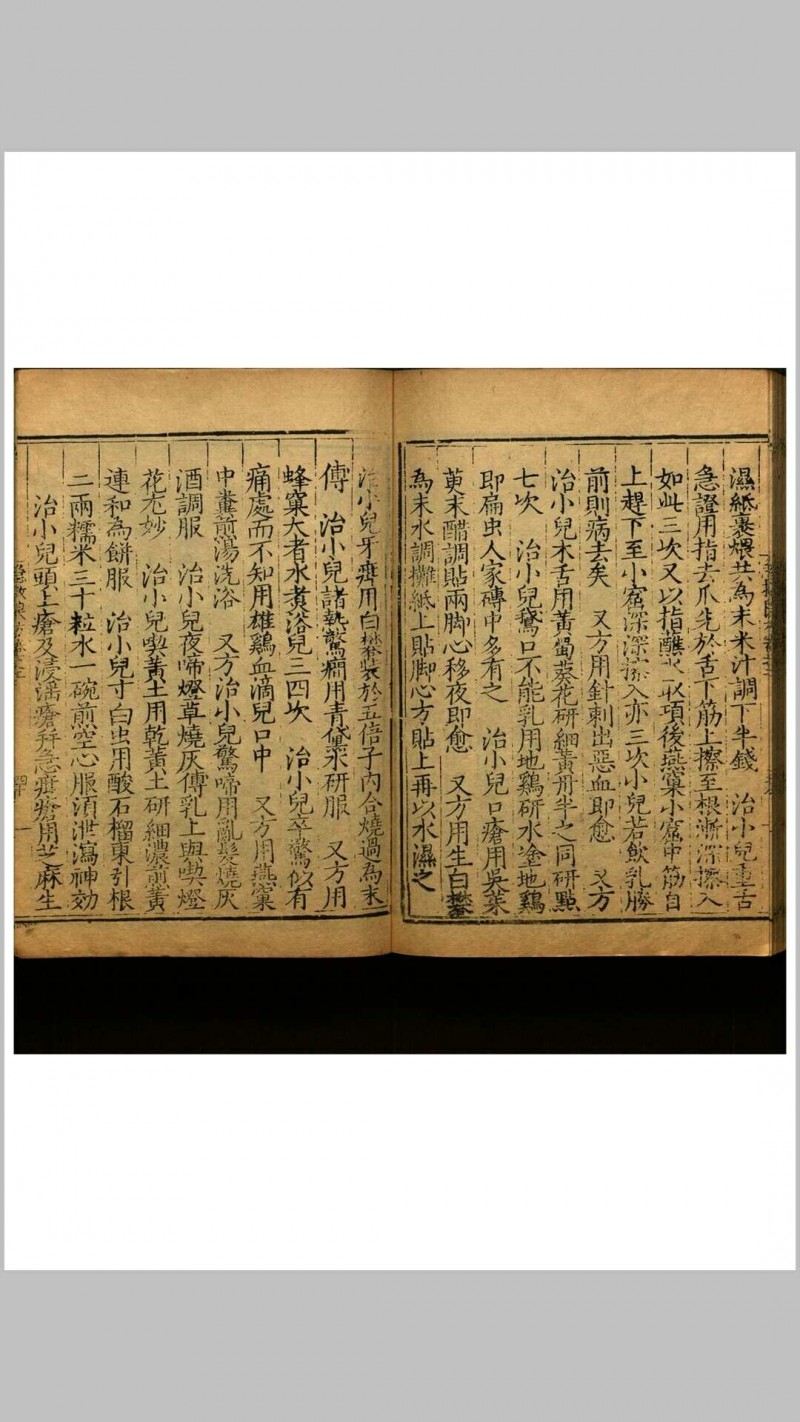 濕紙裹煨共為末米汁調下半錢　治小兒重舌
急證用指去爪先於舌下筋上擦至根漸深擦入
如此三次又以指蘸水取項後燕窠小窩中筋自
上趕下至小窩深深擦入亦三次小兒若飲乳勝
前則病去矣　又方用針刺出惡血即愈　又方
治小兒木舌用黃蜀葵花研細黃丹半之同研點
七次　治小兒鵞口不能乳用地鷄研水塗地鷄
即扁虫人家磚中多有之　治小兒口瘡用吳茱
萸末醋調貼兩脚心移夜即愈　又方用生白礬
為末水調攤紙上貼脚心方貼上再以水濕之
治小兒牙疳用白礬裝於五倍子內合燒過為末
傅　治小兒諸熱驚癎用青黛米研服　又方用
蜂窠大者水煑浴兒三四次　治小兒卒驚似有
痛處而不知用雄鷄血滴兒口中　又方用燕窠
中糞煎湯洗浴　又方治小兒驚啼用亂髮燒灰
酒調服　治小兒夜啼燈草燒灰傅乳上與喫燈
花尤妙　治小兒喫黃土用乾黃土研細濃煎黃
連和為餅服　治小兒寸白虫用酸石榴東引根
二兩糯米三十粒水一碗煎空心服湏泄瀉神効
治小兒頭上瘡及浸滛瘡并急疳瘡用芝麻生